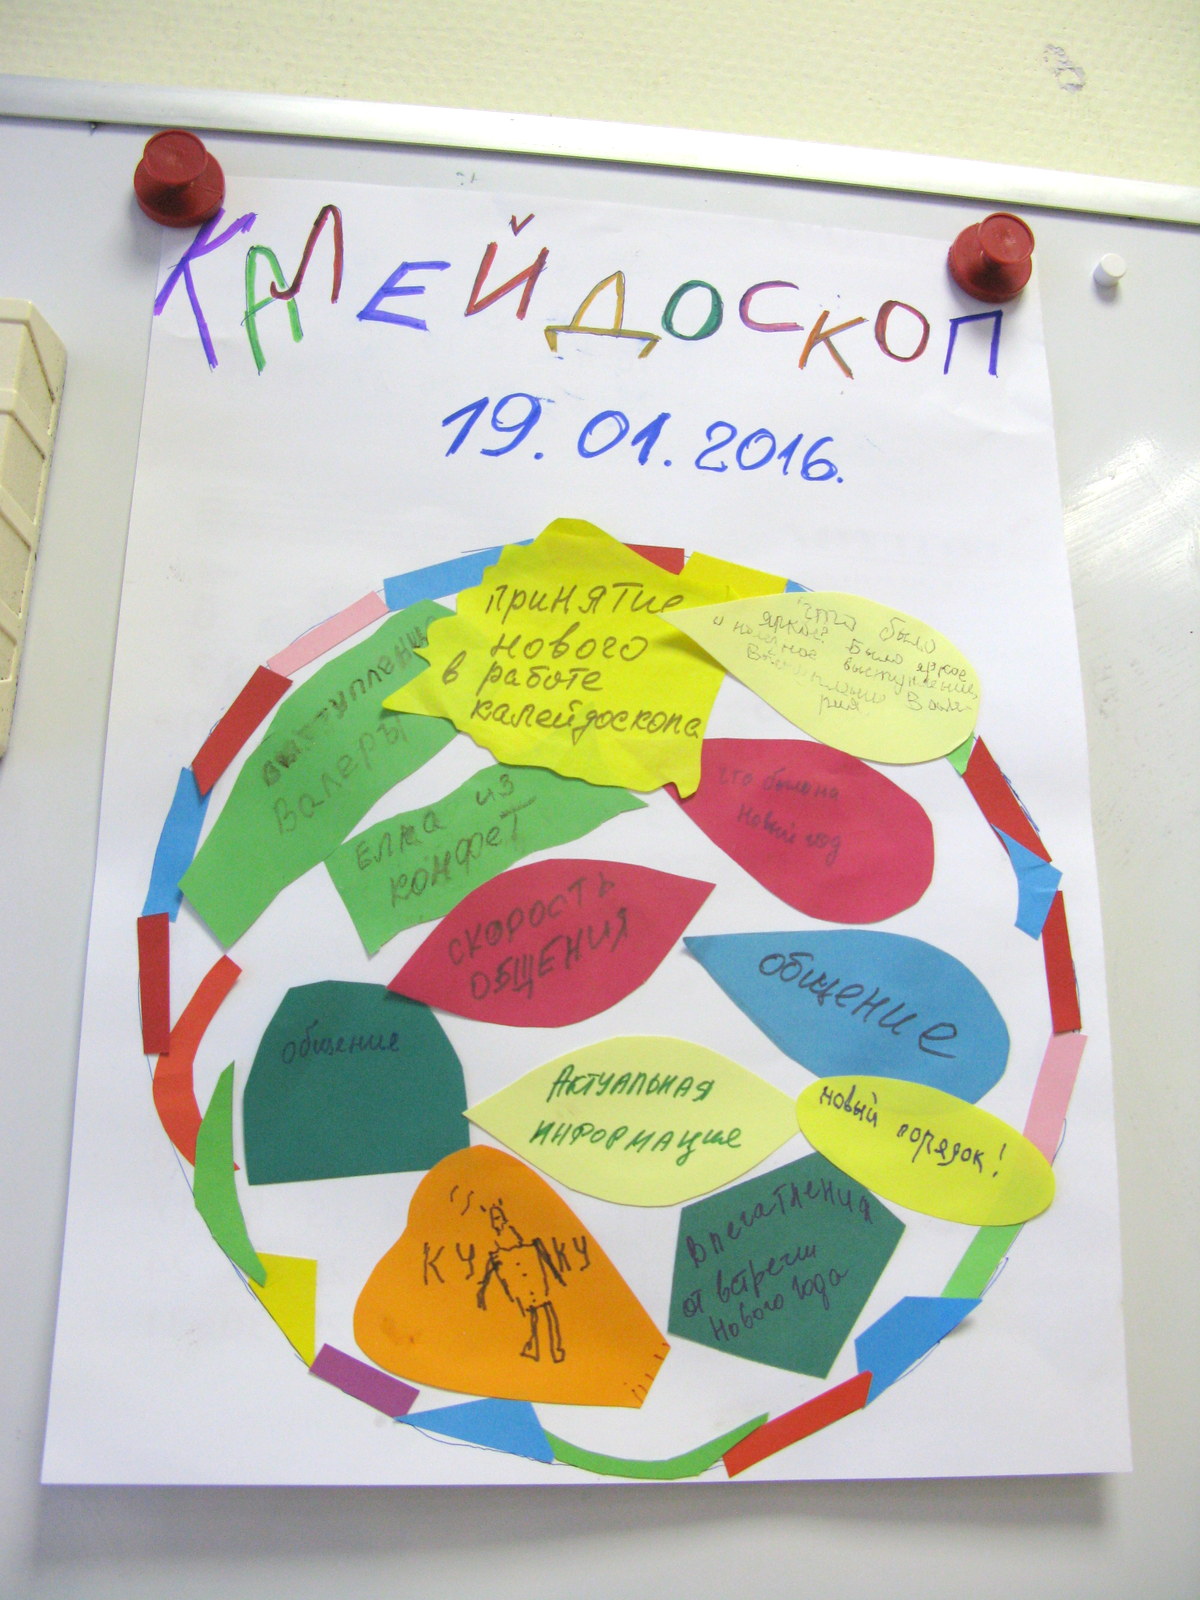 КАЛЕЙДОСКОП
19.01.2016.
ПРИНЯТИЕ
НОВОГО
в работе
калейдоскопа
что было
яркое Было яркое
выступление
выступленище
Валеры
Елка из
конфет
что было на
Новый год
СКОРОСТЬ
ОБЩЕНИЯ
общение
общение
АКТУАЛЬНАЯ
ИНФОРМАЦИЯ
новый порядок!
КУ КУ
Впечатления
от встречи
Нового года